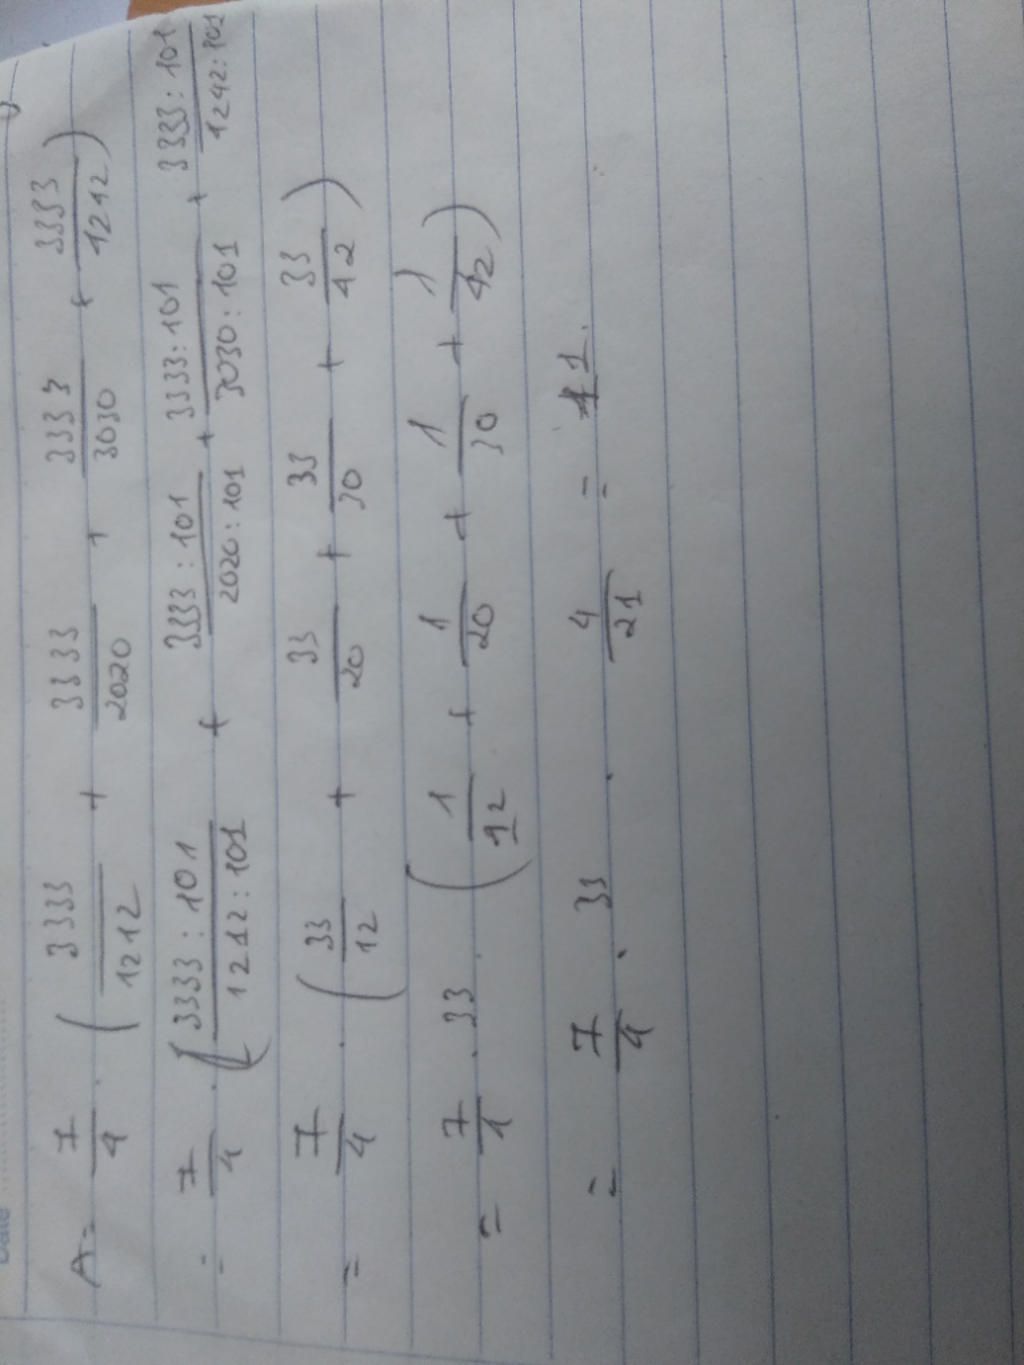 Date
A = 7/4 . ( 3333/1212 + 3333/2020 + 3333/3030 + 3333/4242 )
= 7/4 . ( 3333 : 101/1212 : 101 + 3333 : 101/2020 : 101 + 3333 : 101/3030 : 101 + 3333 : 101/4242 : 101
= 7/4 . ( 33/12 + 33/20 + 33/30 + 33/42 )
= 7/4 . 33 . ( 1/12 + 1/20 + 1/30 + 1/42 )
= 7/4 . 33 . 4/21 = 11.